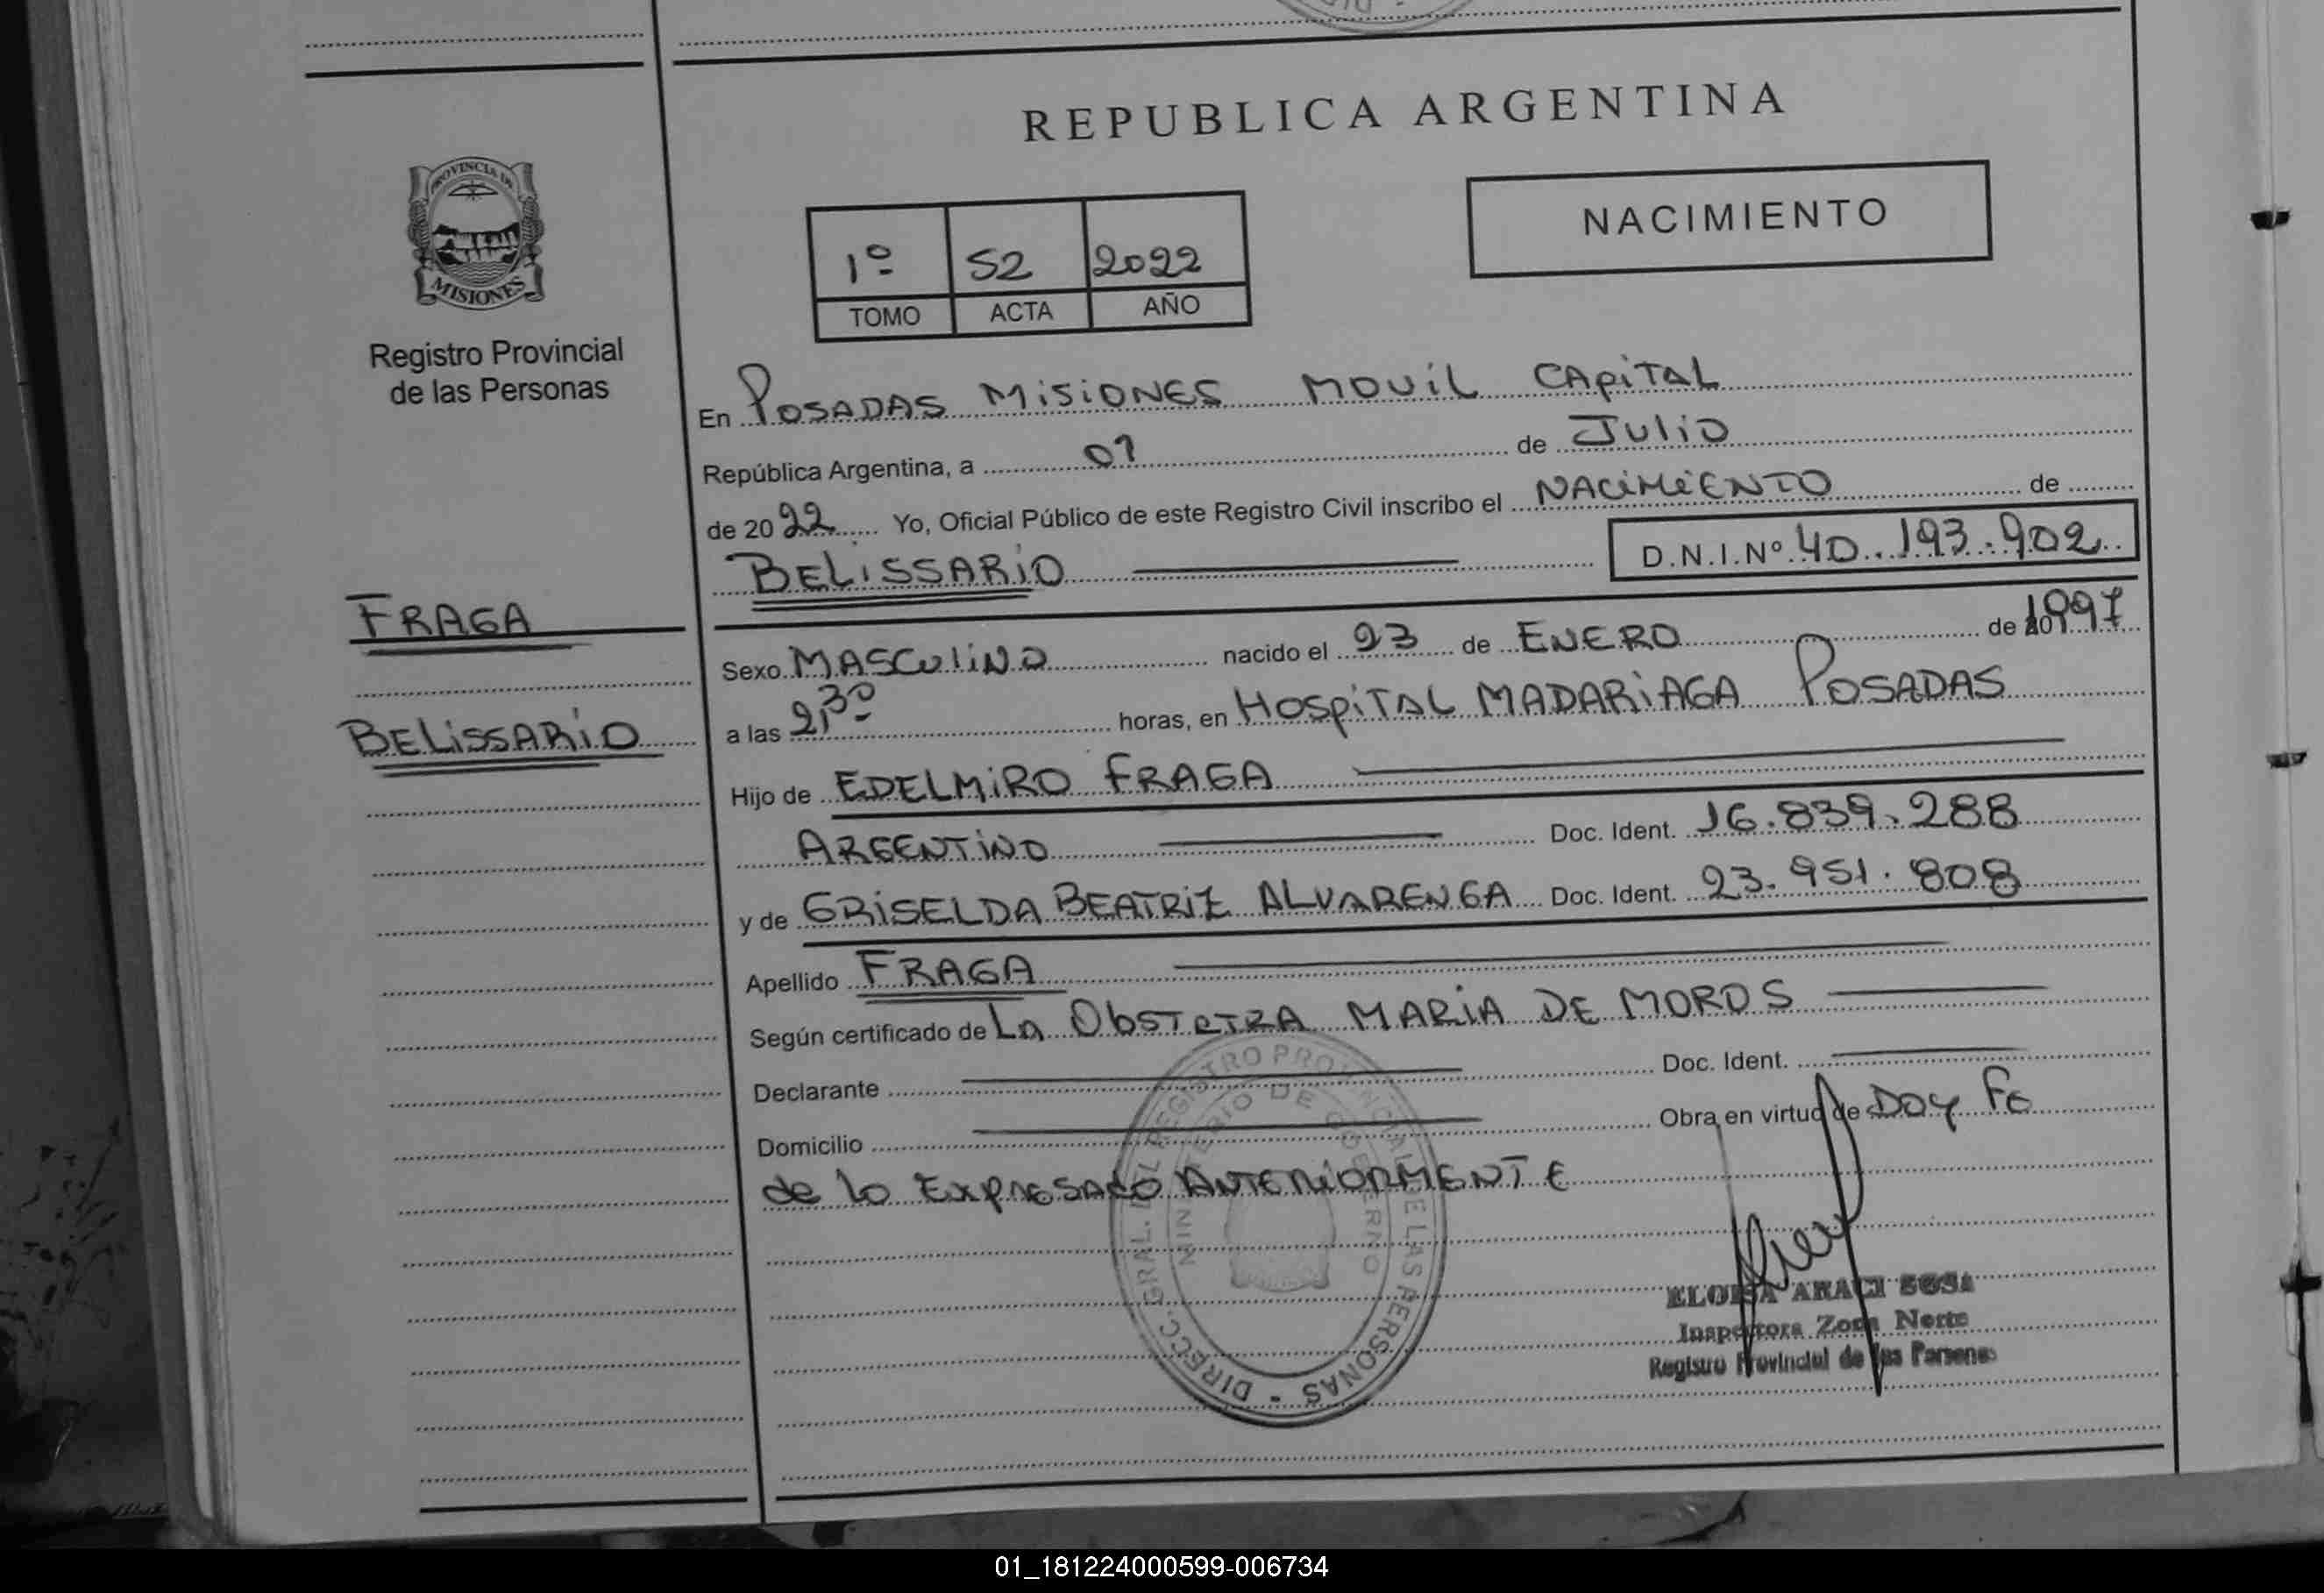 REPUBLICA ARGENTINA
PROVINCIA DE
MISIONES
Registro Provincial
de las Personas
NACIMIENTO
1º 52 2022
TOMO ACTA AÑO
En POSADAS MISIONES MOVIL CAPITAL
República Argentina, a 01 de Julio
de 2022 Yo, Oficial Público de este Registro Civil inscribo el NACIMIENTO de
BELISSARIO D.N.I.Nº 40.193.902
FRAGA
BELISSARIO
Sexo MASCULINO nacido el 23 de ENERO de 1997
a las 21 30 horas, en HOSPITAL MADARIAGA POSADAS
Hijo de EDELMIRO FRAGA
ARGENTINO Doc. Ident. 16.839.288
y de GRISELDA BEATRIZ ALVARENGA Doc. Ident. 23.951.808
Apellido FRAGA
Según certificado de LA OBSTETRA MARIA DE MOROS
Declarante Doc. Ident.
Domicilio Obra en virtud de DOY FE
de lo EXPRESADO ANTERIORMENTE
DIRECC. GRAL. DEL REGISTRO PROVINCIAL DE LAS PERSONAS
MINISTERIO DE GOBIERNO
ELOISA ARACI SOSA
Inspectora Zona Norte
Registro Provincial de las Personas
01_181224000599-006734